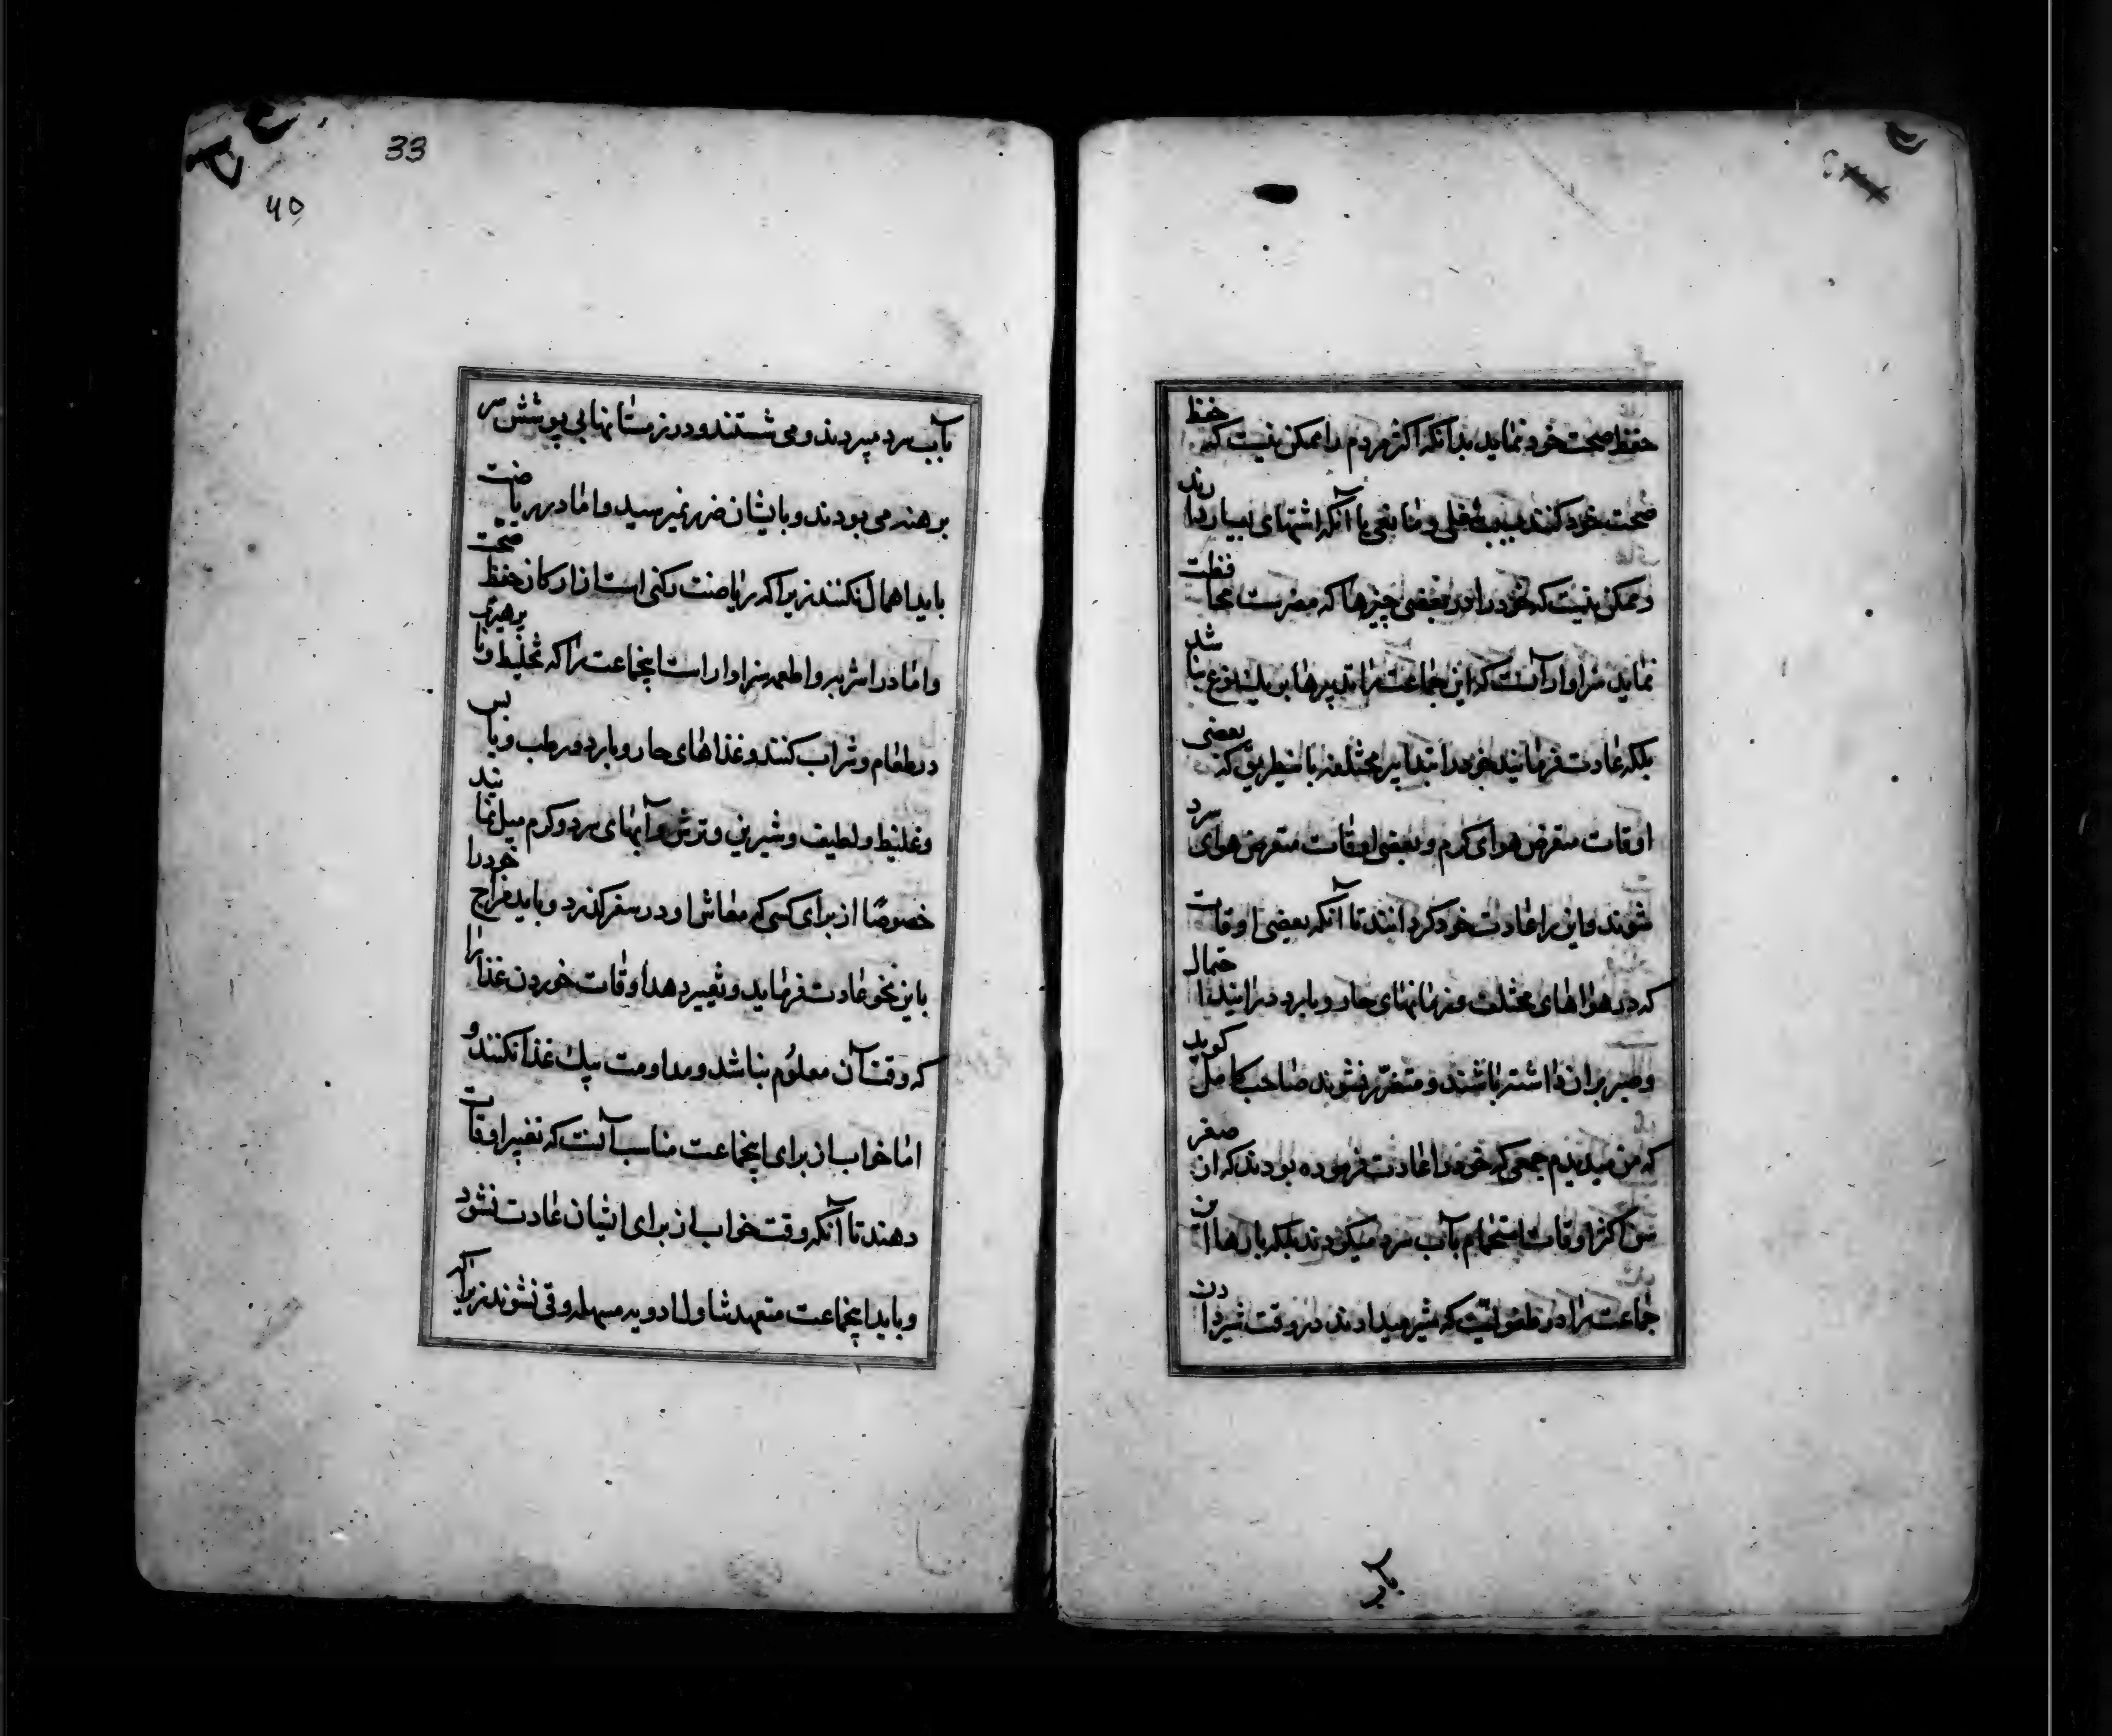 حفظ صحت خود نماید بدانکه اکثر مردم را ممکن نیست که حفظ
صحت خود کنند بسبب شغلی و مانعی یا آنکه اشتهای بسیار دارند
و ممکن نیست که خود را از بعضی چیزها که مضرست محافظت
نمایند سزاوار آنست که این جماعت را تدبیرها بر یک نوع نباشد
بلکه عادت فرمایند خود را بتدابیر مختلفه باینطریق که بعضی
اوقات متعرض هوای کرم و بعضی اوقات متعرض هوای سرد
شوند و این را عادت خود کردانند تا آنکه بعضی اوقات
که در هواهای مختلف و زمانهای حار و بارد درایند احتمال
و صبر بران داشته باشند و متضرر نشوند صاحب کامل کوید
که من میدیدم جمعی که خود را عادت فرموده بودند که از صغر
سن اکثر اوقات استحمام بآب سرد میکردند بلکه بارها این
جماعت را در طفولیت که شیر میدادند در وقت شیر دادن
بآب
33
40
بآب سرد میبردند و می شستند و در زمستانها بی پوشش سر
برهنه می بودند و بایشان ضرر نمیرسید و اما در ریاضت
باید اهمال نکنند زیرا که ریاضت رکنی است از ارکان حفظ صحت
و اما در اشربه و اطعمه سزاوار است اینجماعت را که تخلیط و ناپرهیزی
در طعام و شراب کنند و غذاهای حار و بارد و رطب و یابس
و غلیظ و لطیف و شیرین و ترش و آبهای سرد و کرم میل نمایند
خصوصًا از برای کسی که معاش او در سفر کذرد و باید مزاج خود را
باین نحو عادت فرماید و تغییر دهد اوقات خوردن غذا را
که وقت آن معلوم نباشد و مداومت بیک غذا نکنند و
اما خواب از برای اینجماعت مناسب آنست که تغییر اوقات
دهند تا آنکه وقت خواب از برای ایشان عادت نشود
و باید اینجماعت متعهد تناول ادویه مسهله و قی نشوند زیرا که